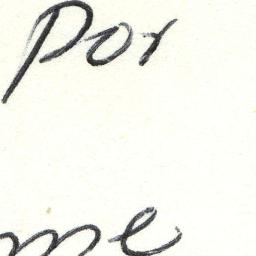 por
me